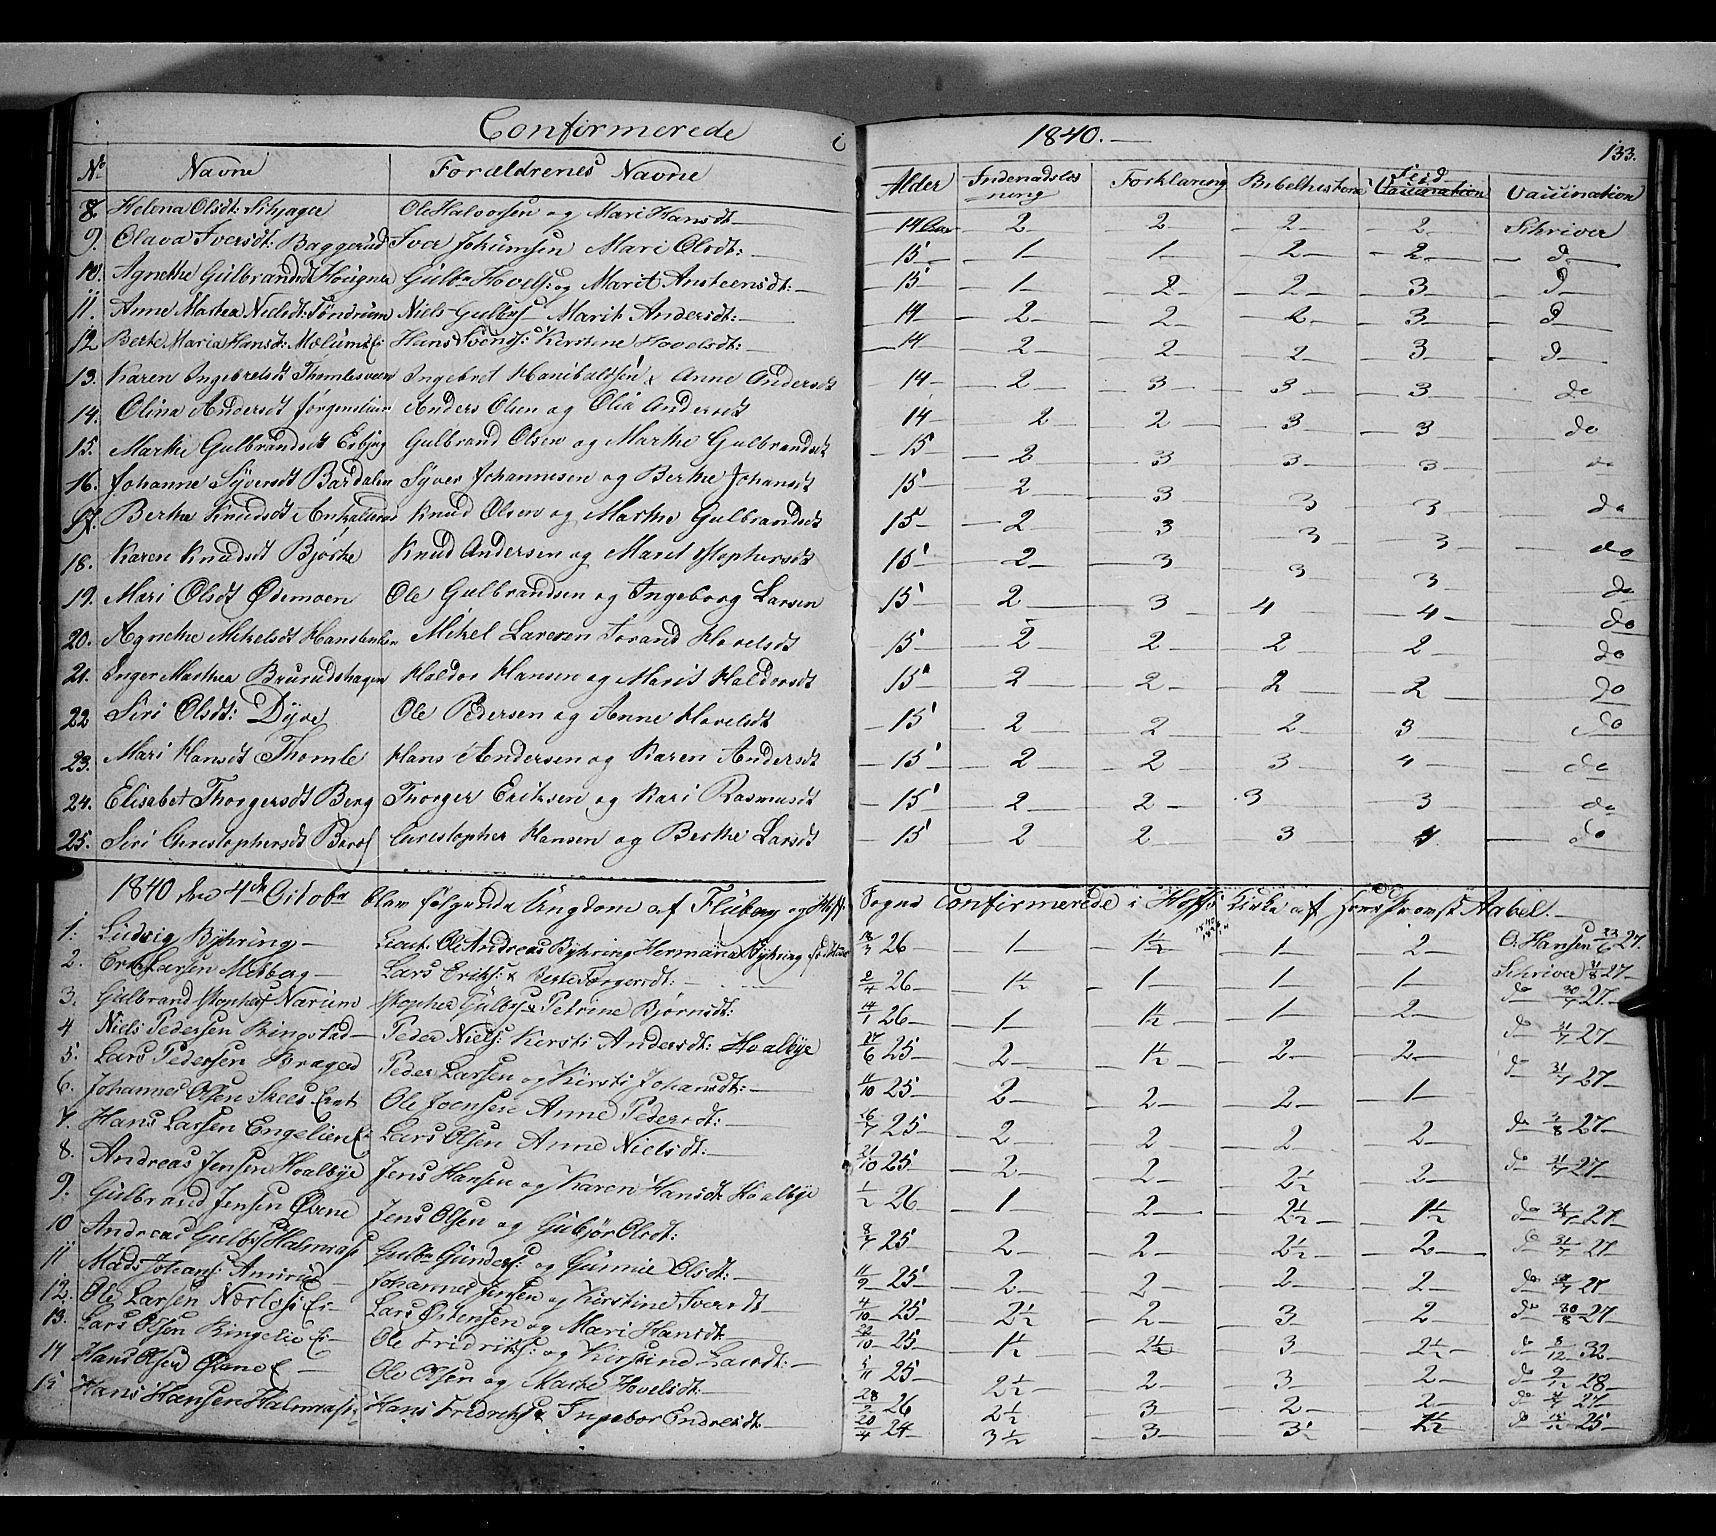 Confirmerede i 1840. — 133.
No Navne Forældrenes Navne Alder Indenadslæsning Forklaring Bibelhistorie Flid Vaccination
8. Helena Olsdt: Ole Halvorsen og Mari Hansdt 14 Aar 2 2 2 2 Schriver
9. Olava Iversdt: Baggerud Iver Johansen Mari Olsdt: — 15 1 1 2 2 do
10. Agnethe Gulbrandsdt Gulbr Hovels: og Marit Ansteensdt: — 15 1 2 2 3 do
11. Anne Marthea Nielsdt: Tøndrum Niels Gulbrs Marit Andersdt: — 14 2 2 2 3 do
12 Berte Maria Hansdt: Mælumsei Hans Svends: Kirstine Hovelsdt: — 14 2 2 2 3 do
13. Karen Ingebretsdt Thomlesveen Ingebret Hanibaldsen & Anne Andersdt 14 2 3 3 3 do
14. Olina Andersdt Jørgenslien Anders Olsen og Olia Andersdt 14 2 2 3 3 do
15. Marthe Gulbrandsdt Gulbrand Olsen og Marthe Gulbrandsdt 15 2 3 3 3 do
16. Johanne Syversdt Bardalen Syver Johannesen og Berthe Johansdt 15 2 3 3 3 do
17. Berthe Knudsdt Knud Olsen og Marthe Gulbrandsdt 15 2 3 3 3 do
18. Karen Knudsdt Bjørke Knud Andersen og Maret Stophersdt 15 2 3 3 3 do
19. Mari Olsdt Ødemoen Ole Gulbrandsen og Ingeborg Larsen 15 2 3 4 4 do
20. Agnethe Mikelsdt Hanstenlien Mikel Larsen Torand Hovelsdt 15 2 2 2 2 do
21. Inger Marthea Baurudshagen Haldor Hansen og Marit Haldorsdt 15 2 2 2 2 do
22 Siri Olsdt: Dyve Ole Pedersen og Anne Hovelsdt 15 2 2 2 3 do
23. Mari Hansdt Thomle Hans Andersen og Karen Andersdt 15 2 2 3 4 do
24. Elisabet Thorgersdt Berg Thorger Eriksen og Kari Rasmusdt 15 2 2 3 3 do
25. Siri Christophersdt Christopher Hansen og Berthe Larsdt 15 2 2 3 4 do
1840 den 4de Octobr blev følgende Ungdom af Fluberg og Hoffs Sogne Confirmerede i Hoffs Kirke af Hans Provst Aabel. —
1. Ludvig Byhring — Leut. Ole Andreas Byhring Hermana Byhring 18/3 26 1 1½ 1 2 O. Hansen 23/6 27.
2. Erik Larsen Melberg — Lars Eriks: & Berte Torgersdt: — 2/4 26 1½ 1 1 1 Schriver 31/8 27
3. Gulbrand Stophers Narum Stopher Gulbrs & Petrine Bjørnsdt: — 14/1 26 1 1½ 1 2 do 30/7 27
4 Niels Pedersen Ringstad — Peder Niels: Kersti Andersdt: Hoalbye 27/6 25 2 1½ 2 2 do 31/7 27
5. Lars Pedersen Braged Peder Larsen og Kirsti Johansdt: — 11/10 25 2 2 2 1 do 31/7 27
6. Johannes Olsen Ole Joensen Anne Pedersdt: — 26/7 25 2 2 2 2 do 3/8 27
7. Hans Larsen Engelien E. Lars Olsen Anne Nielsdt: — 21/10 25 2 2 2½ 2 do 31/7 27
8. Andreas Jensen Hoalbye Jens Hansen og Karen Hansdt Hoalbye 1/2 26 1 2 2½ 1½ do 31/7 27
9. Gulbrand Jensen Øvene Jens Olsen og Gubjør Olsdt: 8/7 25 2 2 2½ 2 do 31/7 27
10 Andreas Gulbrs Halmrast Gulbr Gunders: og Gunnie Olsdt: — 11/9 25 2 2 2 2 do 27
11 Mads Johans: Amrud — Johannes Jensen og Kirstine Iversdt — 4/10 25 2½ 2 3 2 do 30/8 27
12. Ole Larsen Ei — Lars Østensen og Mari Hansdt 22/10 25 1½ 2½ 3 2½ do 8/12 32
13. Lars Olsen Ringelie Ei — Ole Fridriks: og Kirstine Larsdt: — 5/11 25 2½ 2 3 2 do 28
14 Hans Olsen Øvene E — Ole Olsen og Marthe Hovelsdt: 28/2 26 2½ 3 2 2 do 27
15 Hans Hansen Halmrast Hans Fridriks & Ingebor Endresdt — 20/4 24 3½ 3 3½ 1½ do 25